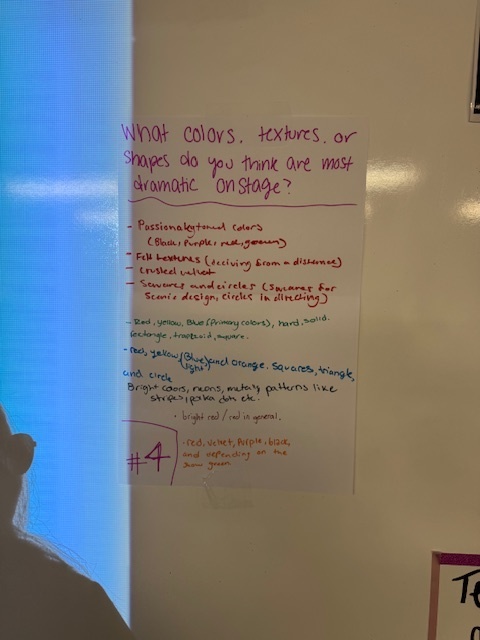 What colors, textures, or
shapes do you think are most
dramatic onstage?
- Passionately toned colors
(Black, Purple, red, green)
- Felt textures (deciving from a distance)
- Crushed velvet
- Squares and circles (squares for
Scenic design, circles in directing)
- Red, yellow, Blue (Primary colors), hard, solid.
rectangle, trapezoid, square.
- red, yellow, (Blue) and orange. squares, triangle,
light
and circle
Bright colors, neons, metally patterns like
stripes, polka dots etc.
• bright red / red in general.
#4
• red, velvet, Purple, black,
and depending on the
show green
Te